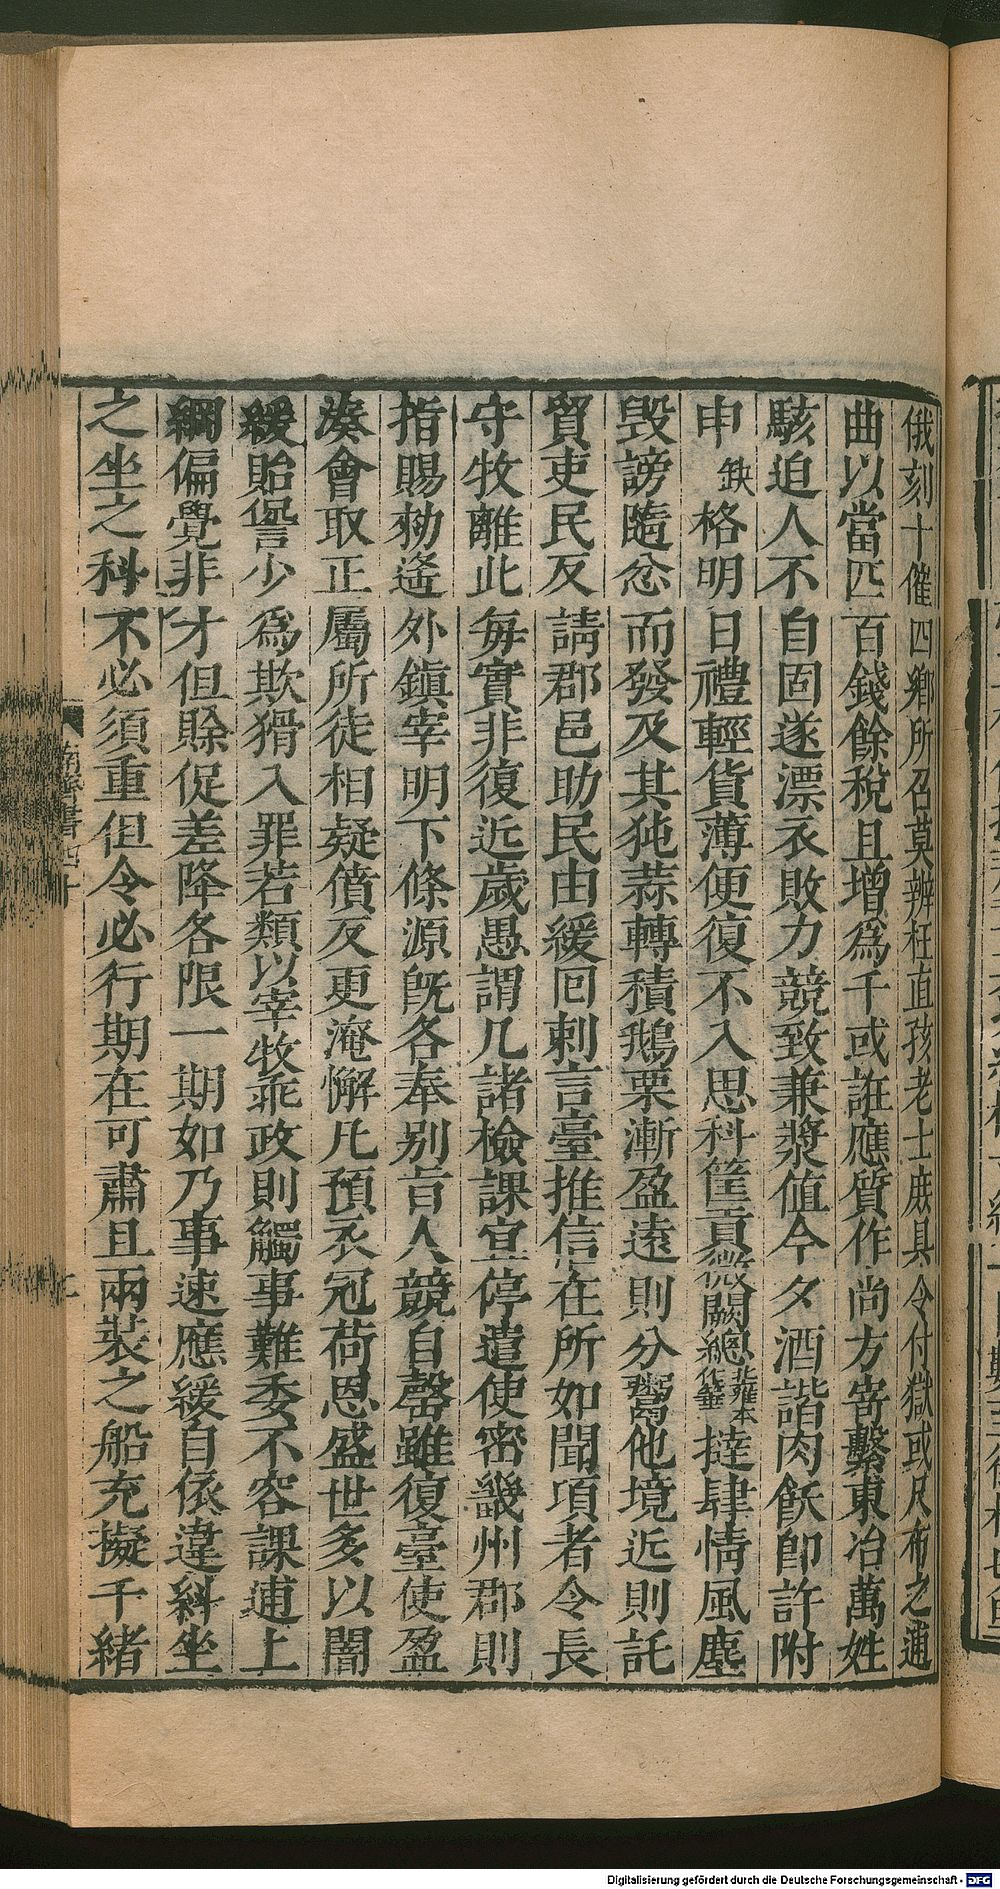 俄刻十催四鄉所召莫辨枉直孩老士庶具令付獄或尺布之逋
曲以當匹百錢餘稅且增爲千或誑應質作尚方寄繫東冶萬姓
駭迫人不自固遂漂衣敗力競致兼漿值今夕酒諧肉飫即許附
申缺格明日禮輕貨薄便復不入恩科筐貢微闕總北雍本作箠撻肆情風塵
毀謗隨忿而發及其㹠蒜轉積鵝栗漸盈遠則分鬻他境近則託
貿吏民反請郡邑助民由緩囘刺言臺推信在所如聞項者令長
守牧離此每實非復近歲愚謂凡諸檢課宜停遣使密畿州郡則
指賜勑遙外鎮宰明下條源旣各奉別旨人競自罄雖復臺使盈
湊會取正屬所徒相疑僨反更淹懈凡預衣冠荷恩盛世多以闇
緩貽諐少爲欺猾入罪若類以宰牧乖政則觸事難委不容課逋上
綱偏覺非才但賒促差降各限一期如乃事速應緩自依違糾坐
之坐之科不必須重但令必行期在可肅且兩裝之船充擬千緒
南齊書四十
Digitalisierung gefördert durch die Deutsche Forschungsgemeinschaft - DFG